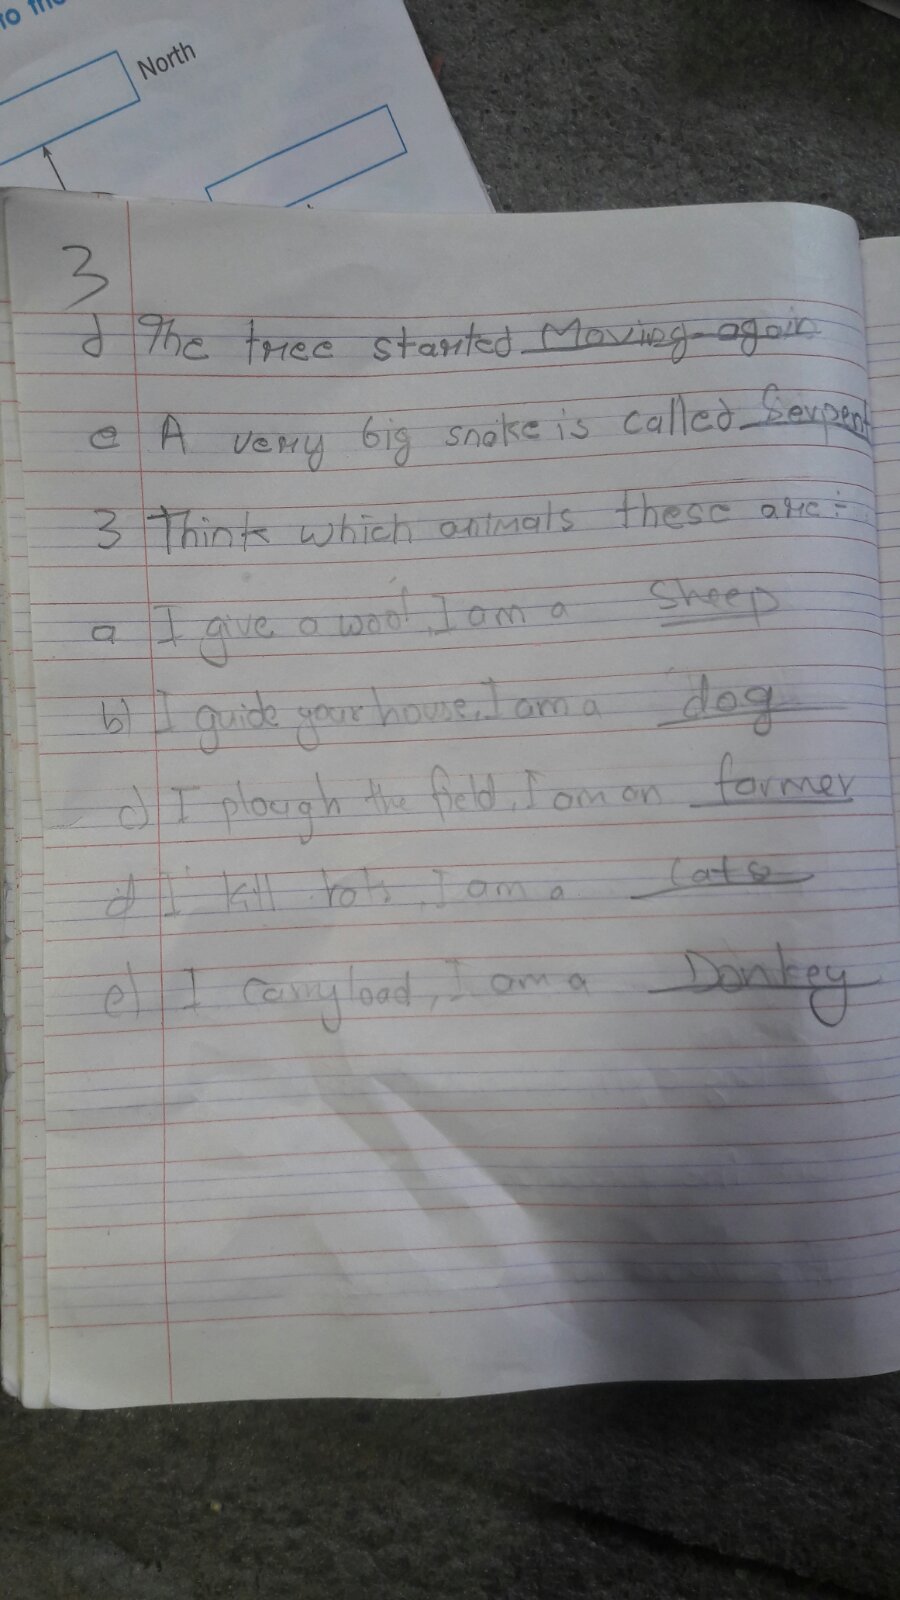 to the
North
3
d The tree started Moving again
e A very big snake is called Serpent
3 Think which animals these are :-
a I give a wool, I am a Sheep
b) I guide your house, I am a dog
c) I plough the field, I am an farmer
d) I kill rats, I am a Cats
e) I carry load, I am a Donkey